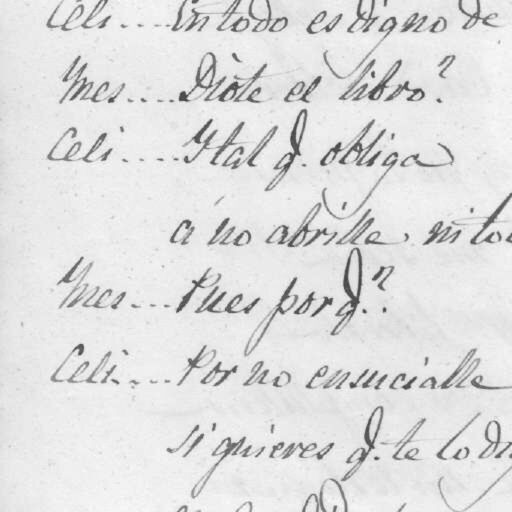 Celi.... En todo es digno de
Ynes.... Diote el libro?
Celi..... Y tal q. obliga
á no abrille ni to
Ynes.... Pues por q.?
Celi..... Por no ensucialle
si quieres q. te lo di